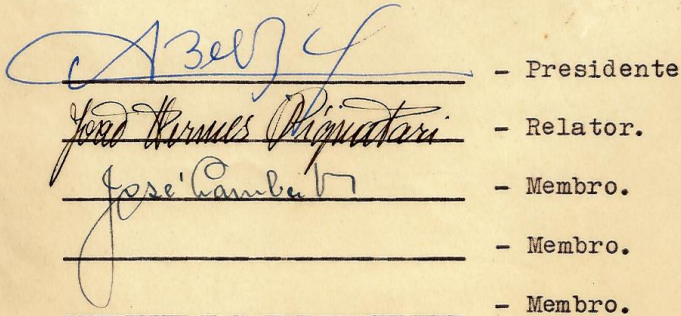 - Presidente
João Hermes Pignatari - Relator.
José Lamberti - Membro.
- Membro.
- Membro.